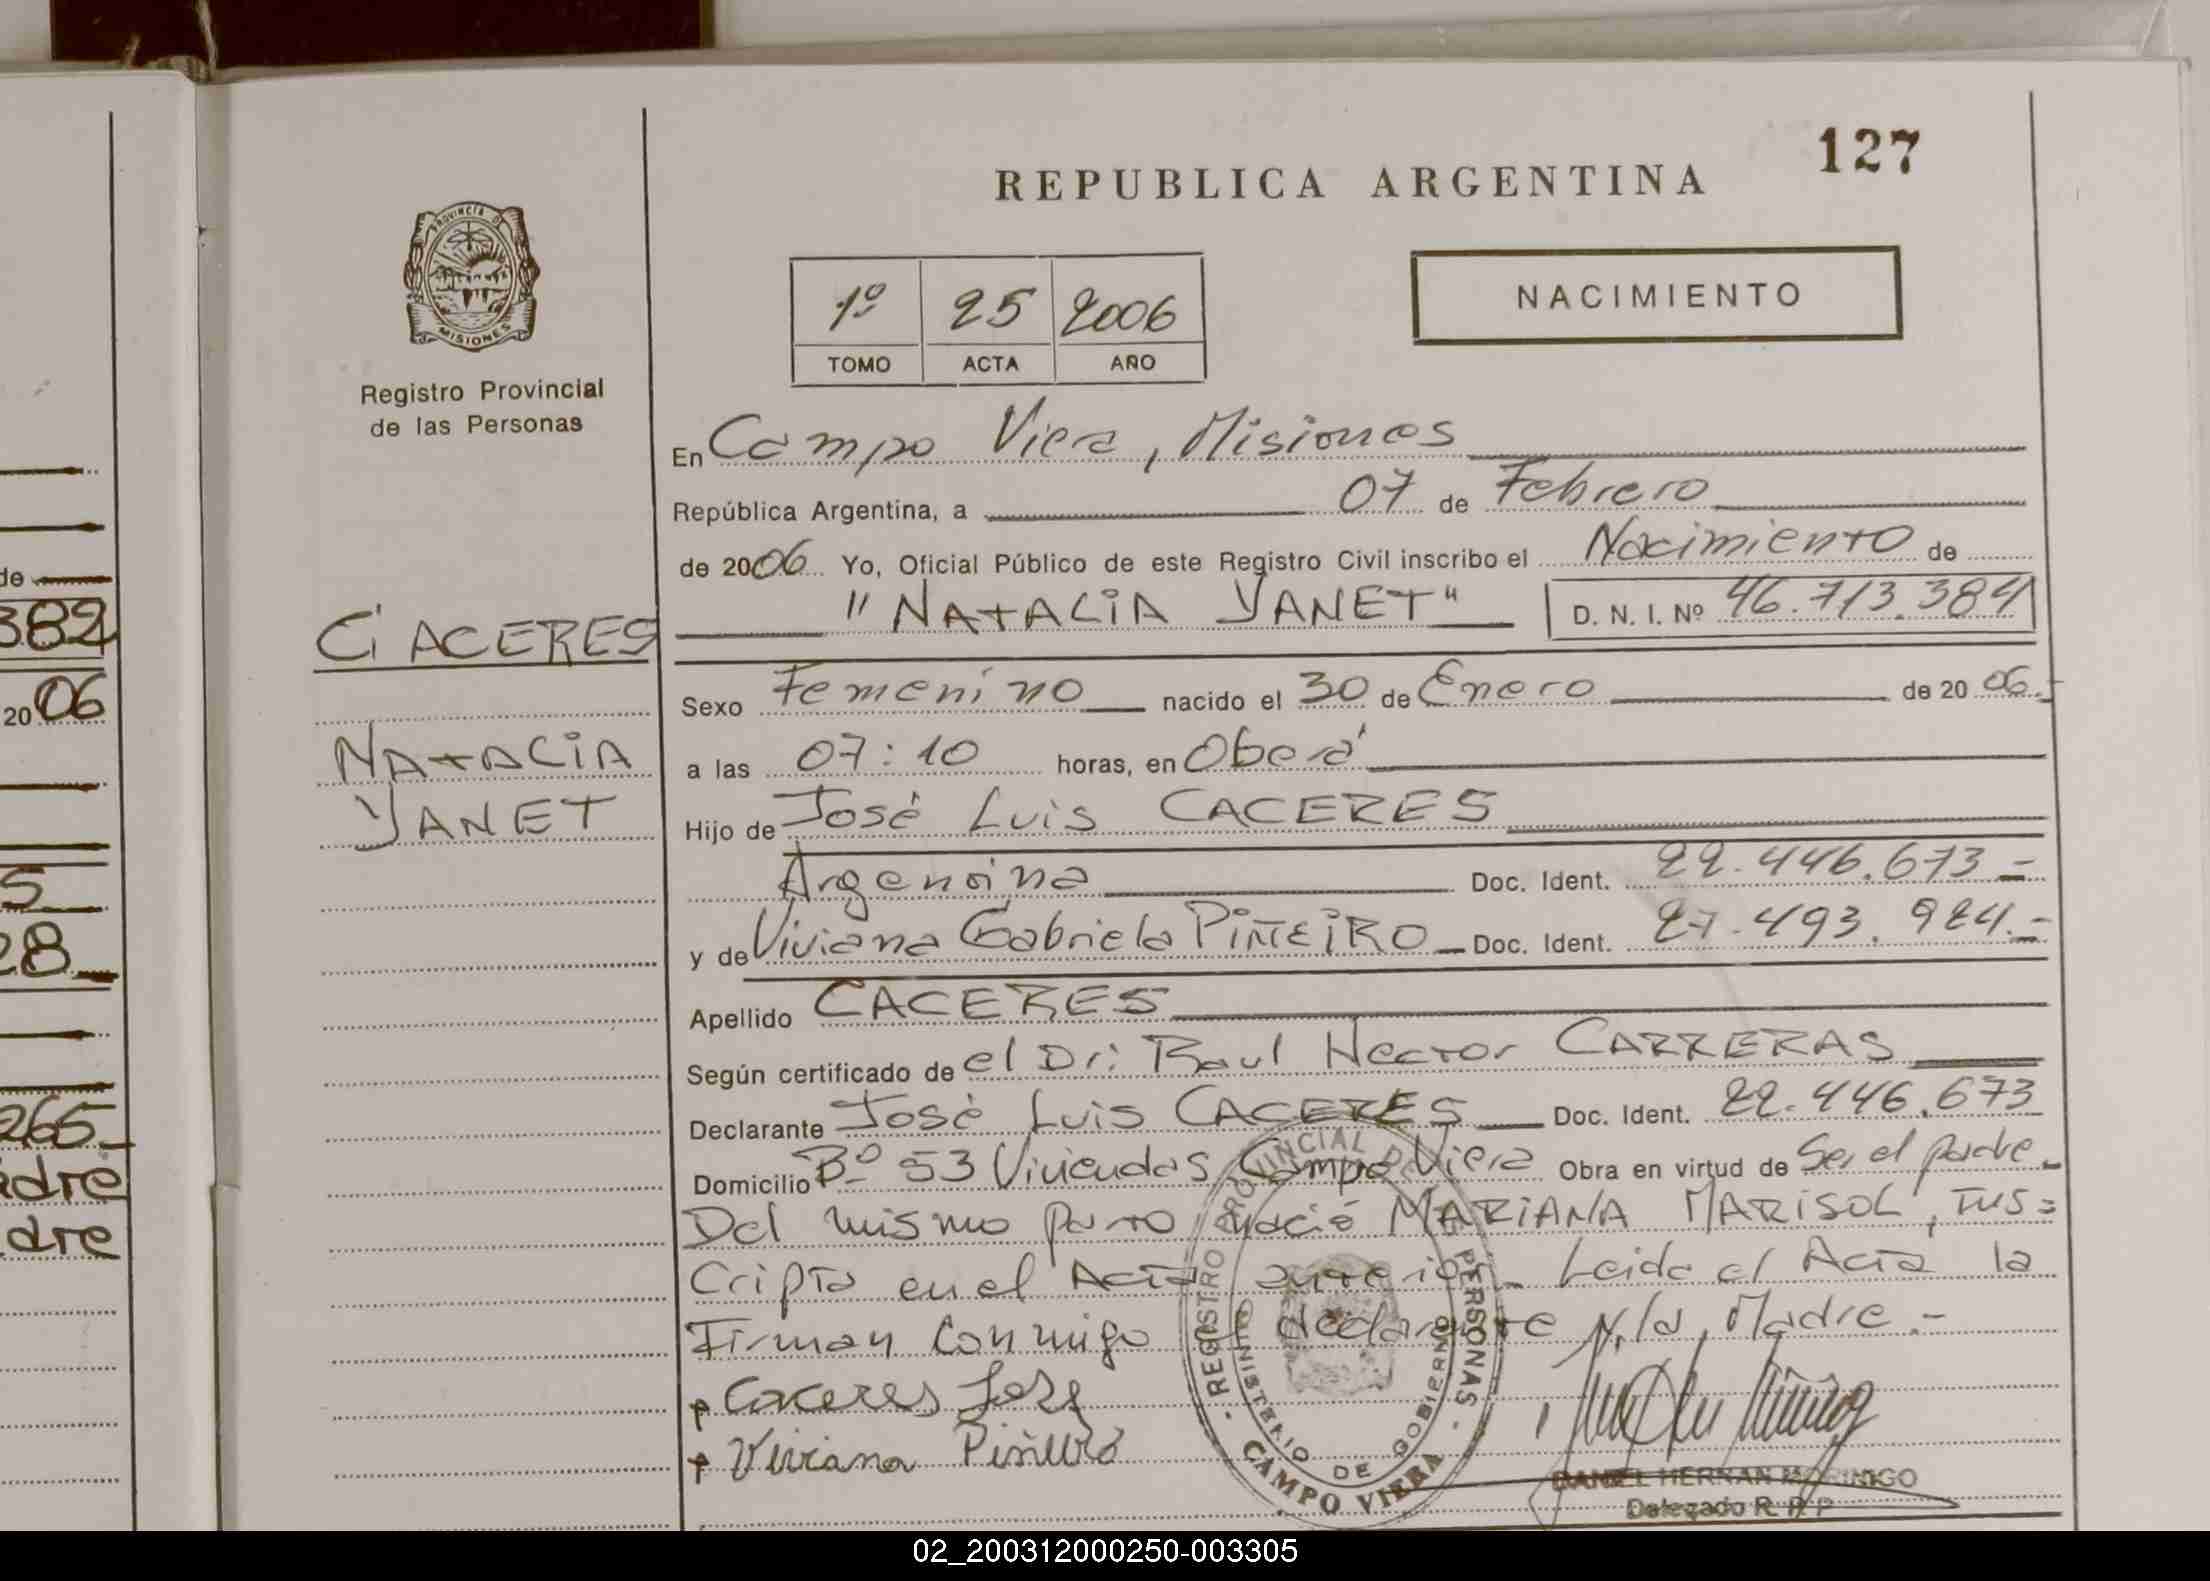 127
REPUBLICA ARGENTINA
PROVINCIA D
MISIONES
Registro Provincial
de las Personas
1º 25 2006
TOMO ACTA AÑO
NACIMIENTO
En Campo Viera, Misiones
República Argentina, a 07 de Febrero
de 2006 Yo, Oficial Público de este Registro Civil inscribo el Nacimiento de
"NATALIA YANET" D. N. I. Nº 46.713.384
CACERES
NATALIA
YANET
Sexo Femenino nacido el 30 de Enero de 20 06.-
a las 07:10 horas, en Oberá
Hijo de José Luis CACERES
Argentina Doc. Ident. 22.446.673=
y de Viviana Gabriela PIÑEIRO Doc. Ident. 27.493.924.=
Apellido CACERES
Según certificado de el Dr: Raul Hector CARRERAS
Declarante José Luis CACERES Doc. Ident. 22.446.673
Domicilio Bº 53 Viviendas Campo Viera Obra en virtud de Ser el padre.
Del mismo parto nació MARIANA MARISOL, Ins=
cripta en el Acta anterior.- Leida el Acta la
Firman conmigo el declarante y la Madre.-
Caceres José
Viviana Piñeiro
REGISTRO PROVINCIAL DE PERSONAS
MINISTERIO DE GOBIERNO
CAMPO VIERA
DANIEL HERNAN MORINIGO
Delegado R. P. P.
de
382
20 06
5
28
265
adre
dre
02_200312000250-003305